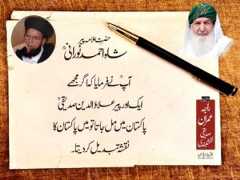 حضرت علامہ پیر
شاہ احمد نورانیؒ
آپ نے فرمایا کہ اگر مجھے
ایک اور پیر علاؤالدین صدیقیؒ
پاکستان میں مل جاتا تو میں پاکستان کا
نقشہ تبدیل کر دیتا۔
عمران
صدیقی